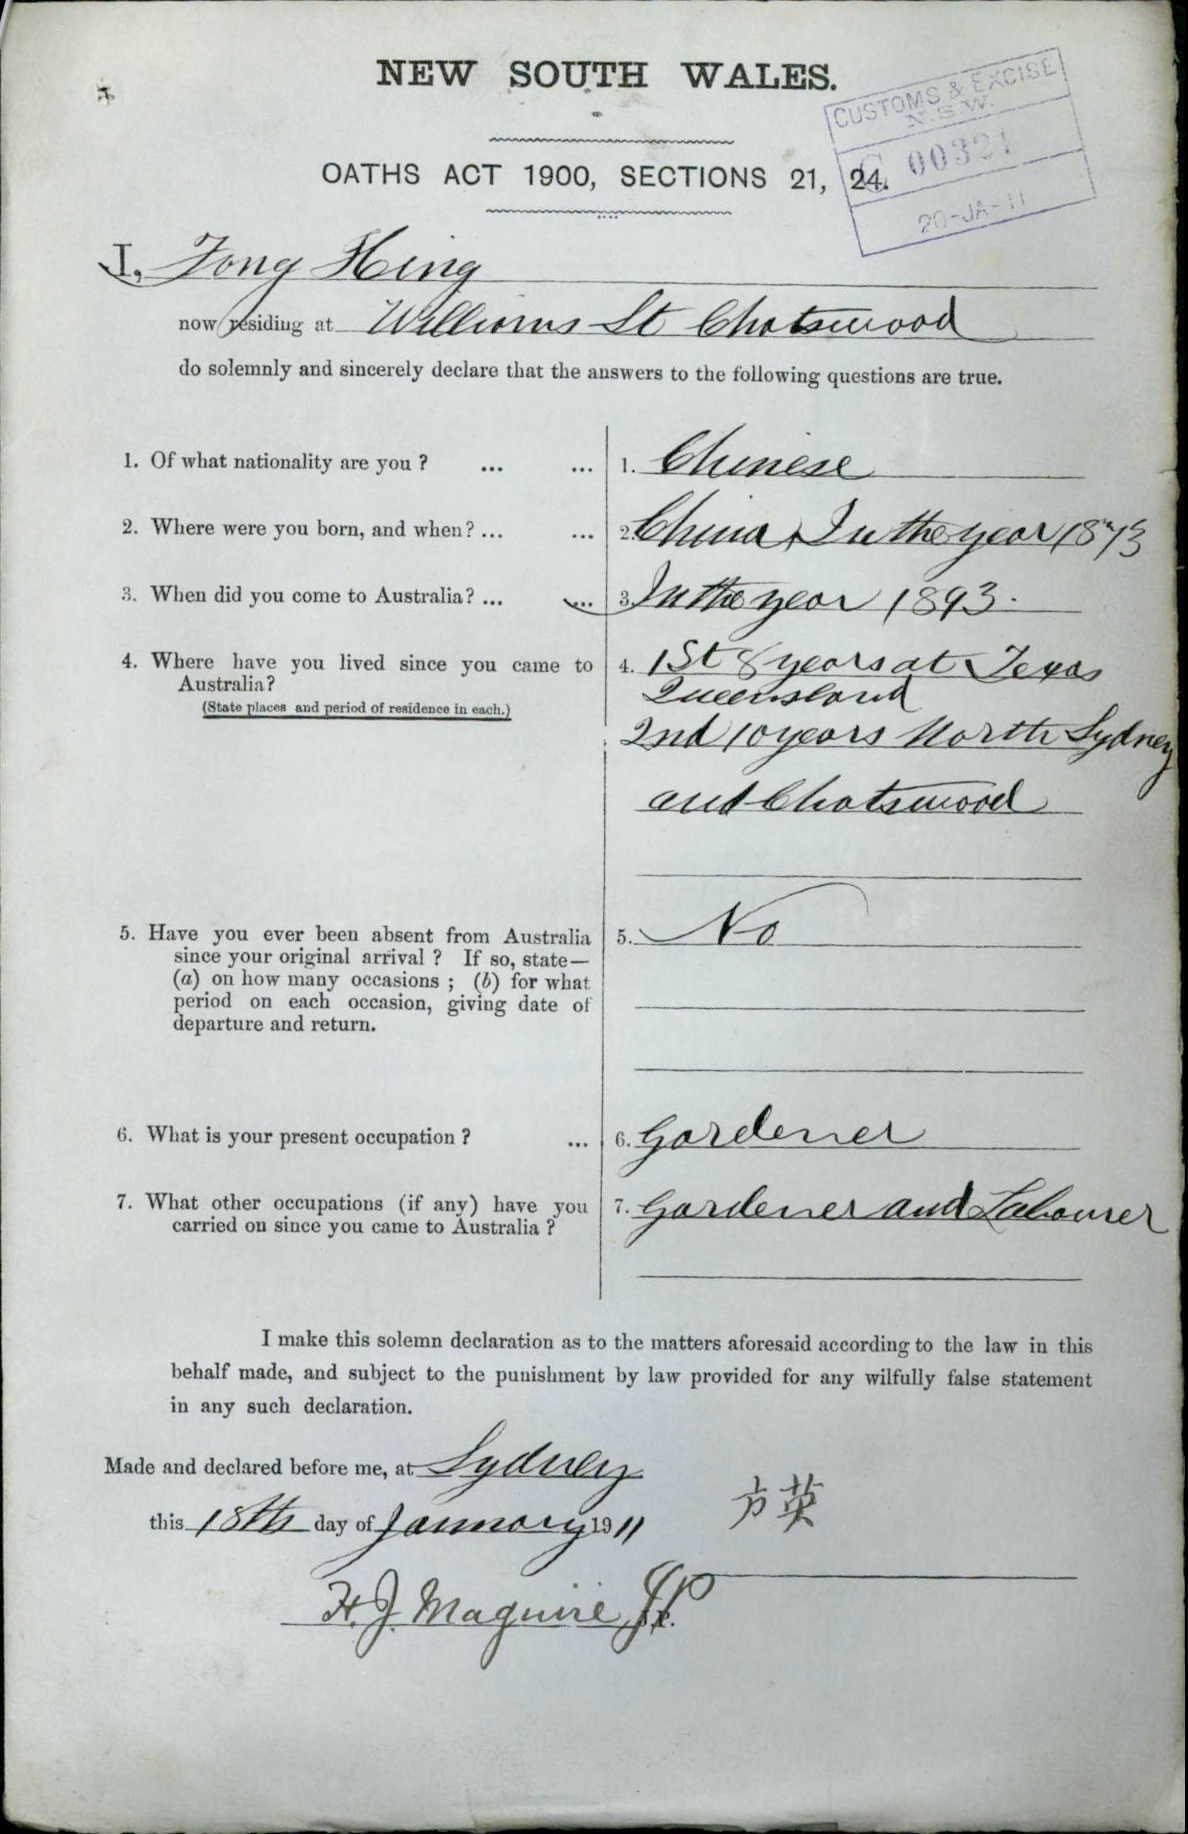 NEW SOUTH WALES.
CUSTOMS & EXCISE
N.S.W.
C 00321
20-JA-11
OATHS ACT 1900, SECTIONS 21, 24.
I, Fong Hing
now residing at Williams St Chatswood
do solemnly and sincerely declare that the answers to the following questions are true.
1. Of what nationality are you ? ... ... 1. Chinese
2. Where were you born, and when? ... ... 2. China In the year 1873
3. When did you come to Australia? ... ... 3. In the year 1893.
4. Where have you lived since you came to 4. 1St 8 years at Texas
Australia? Queensland
(State places and period of residence in each.)
2nd 10 years North Sydney
and Chatswood
5. Have you ever been absent from Australia 5. No
since your original arrival ? If so, state—
(a) on how many occasions ; (b) for what
period on each occasion, giving date of
departure and return.
6. What is your present occupation ? ... 6. Gardener
7. What other occupations (if any) have you 7. Gardener and Labourer
carried on since you came to Australia ?
I make this solemn declaration as to the matters aforesaid according to the law in this
behalf made, and subject to the punishment by law provided for any wilfully false statement
in any such declaration.
Made and declared before me, at Sydney
this 18th day of January 1911
方英
H. J. Maguire JP
J.P.